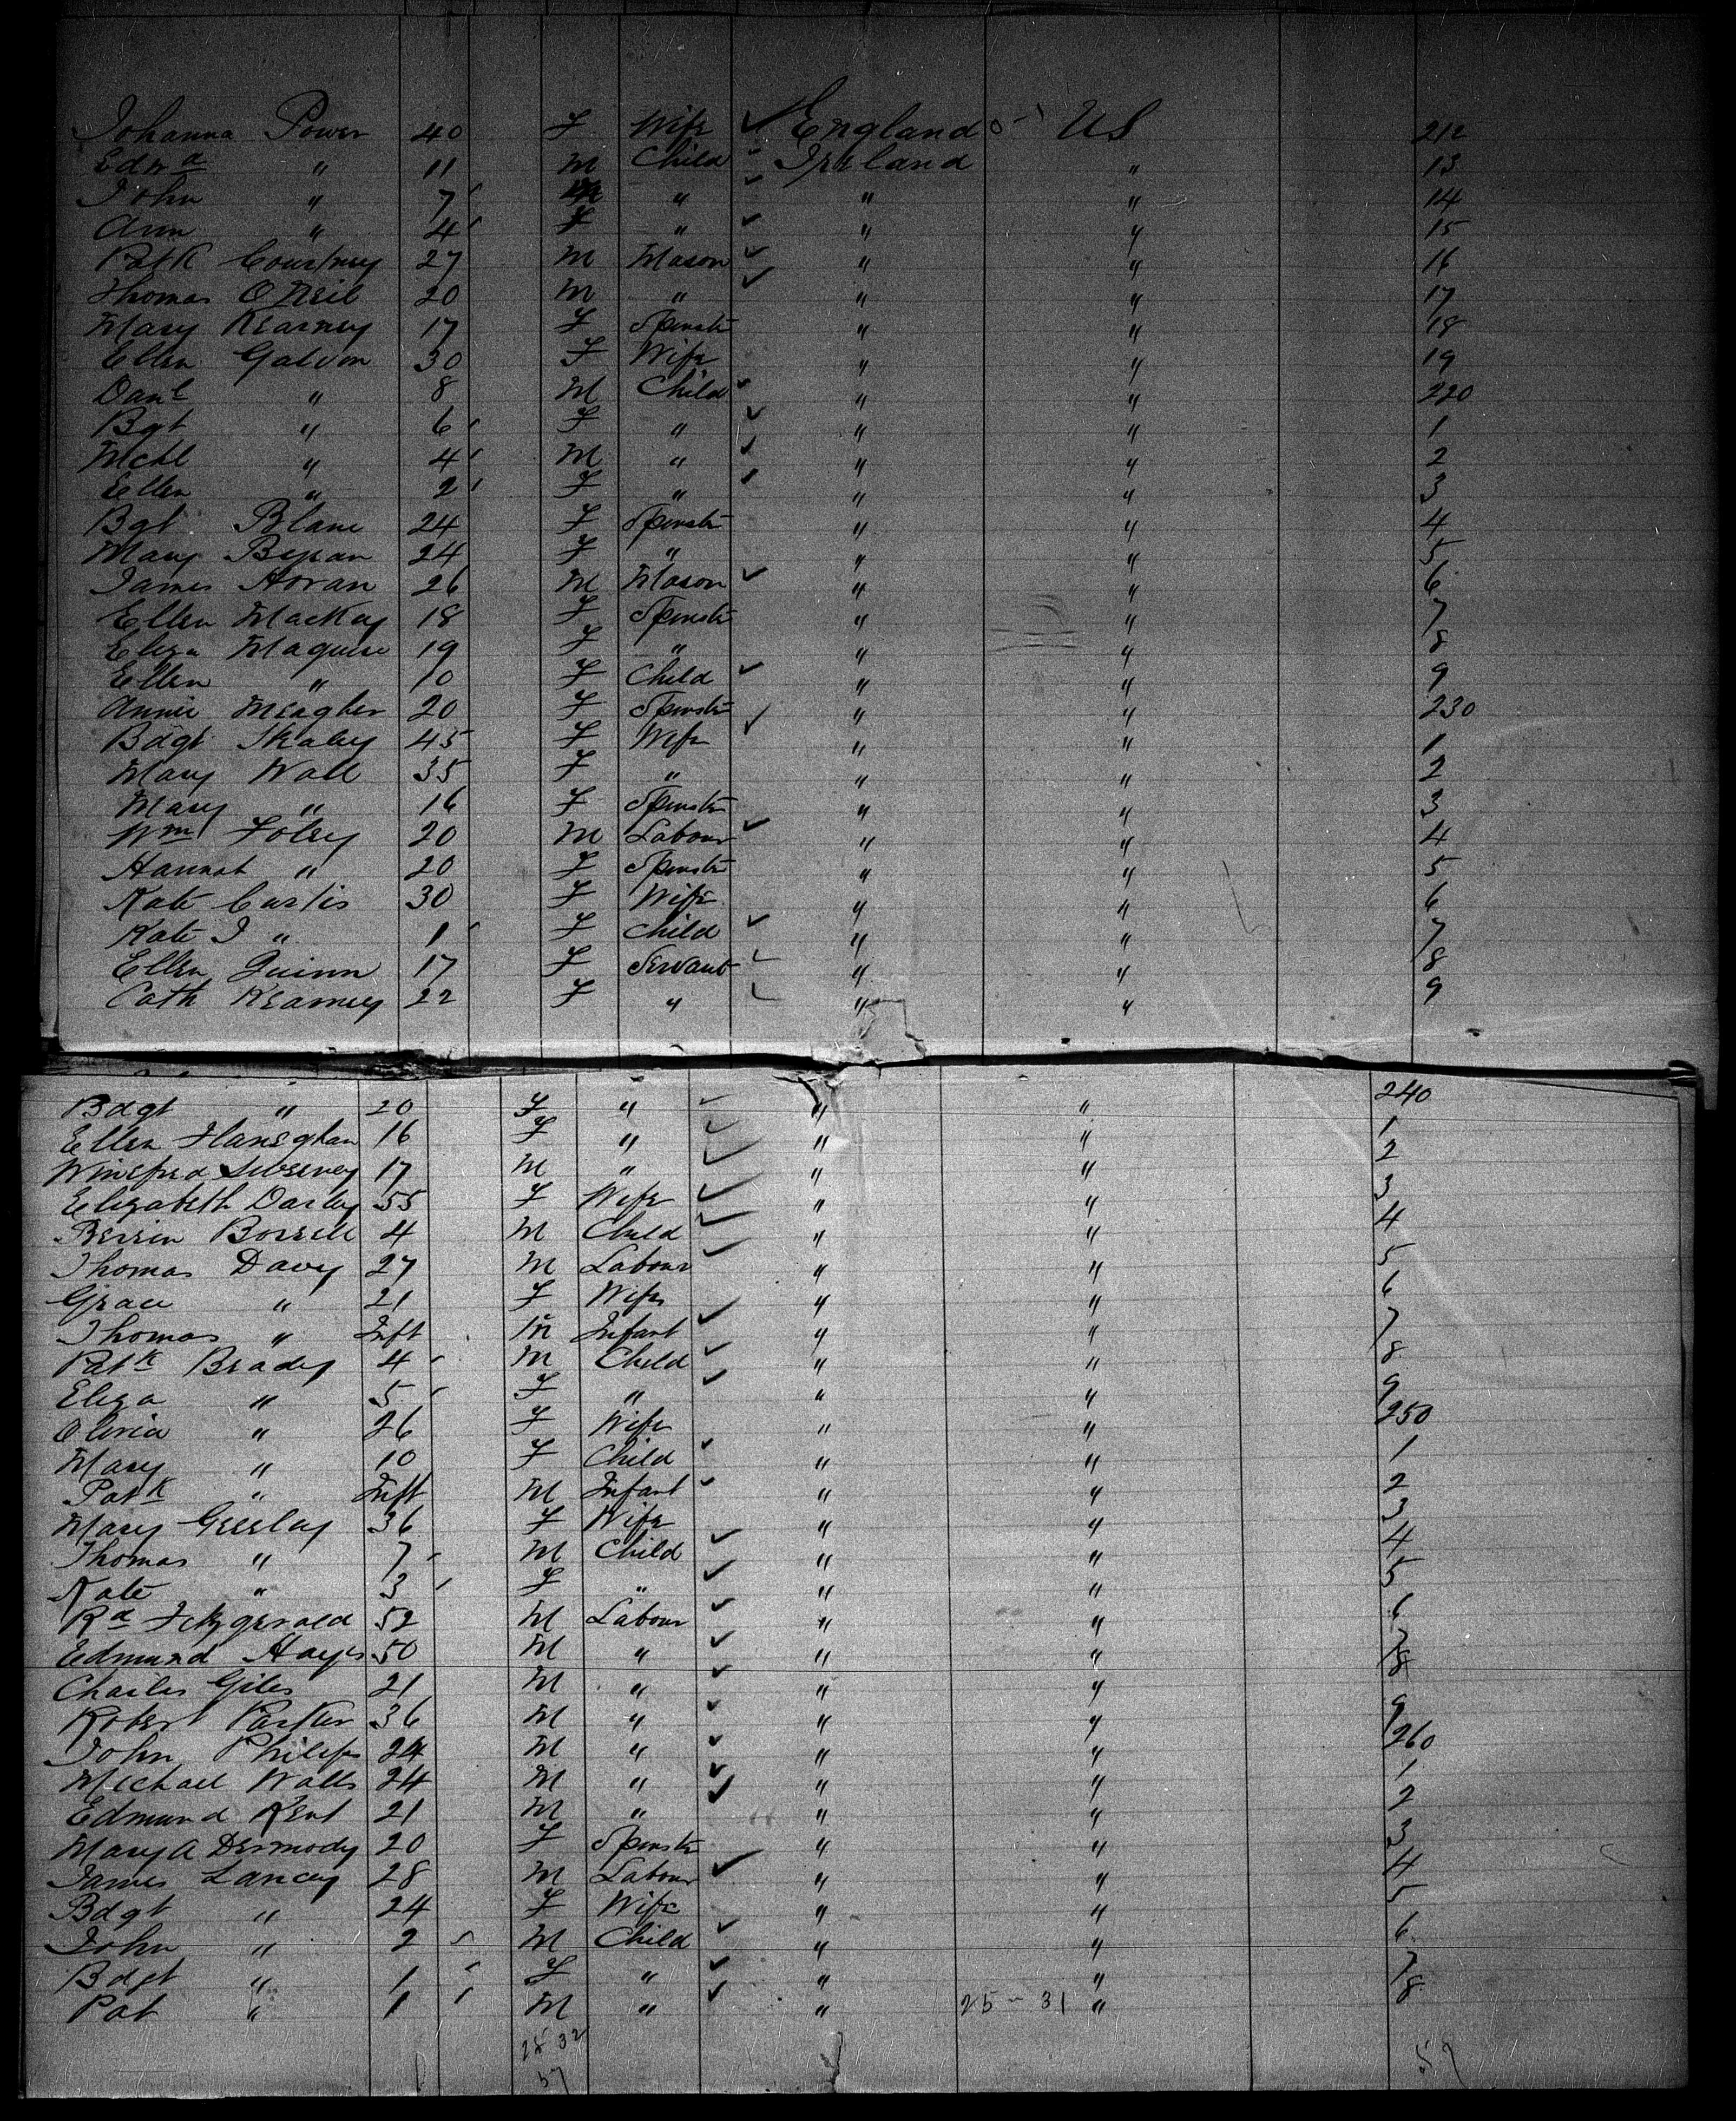 Johanna Power 40 F Wife ✓ England US 212
Edwd " 11 M Child ✓ Ireland " 13
John " 7 M " ✓ " " 14
Ann " 4 F " ✓ " " 15
Patk Courtney 27 M Mason ✓ " " 16
Thomas O Neil 20 M " ✓ " " 17
Mary Kearney 17 F Spinstr " " 18
Ellen Galvon 30 F Wife " " 19
Danl " 8 M Child ✓ " " 220
Bgt " 6 F " ✓ " " 1
Mchl " 4 M " ✓ " " 2
Ellen " 2 F " ✓ " " 3
Bgt Blane 24 F Spinstr " " 4
Mary Byran 24 F " " " 5
James Horan 26 M Mason ✓ " " 6
Ellen MacKay 18 F Spinstr " " 7
Eliza Maguire 19 F " " " 8
Ellen " 10 F Child ✓ " " 9
Annie Meagher 20 F Spinstr " " 230
Bdgt Skaley 45 F Wife ✓ " " 1
Mary Wall 35 F " " " 2
Mary " 16 F Spinstr " " 3
Wm Foley 20 M Labour ✓ " " 4
Hannah " 20 F Spinstr " " 5
Kate Curtis 30 F Wife " " 6
Kate J " 1 F Child ✓ " " 7
Ellen Quinn 17 F Servant ✓ " " 8
Cath Kearney 22 F " ✓ " " 9
Bdgt " 20 F " ✓ " " 240
Ellen Flanaghan 16 F " ✓ " " 1
Winefrid Sweeney 17 M " ✓ " " 2
Elizabeth Darley 55 F Wife ✓ " " 3
Borrell 4 M Child ✓ " " 4
Thomas Davy 27 M Labour ✓ " " 5
Grace " 21 F Wife " " 6
Thomas " Inft M Infant ✓ " " 7
Patk Brady 4 M Child ✓ " " 8
Eliza " 5 F " ✓ " " 9
Olivia " 26 F Wife " " 250
Mary " 10 F Child ✓ " " 1
Patk " Inft M Infant ✓ " " 2
Mary Greelay 36 F Wife " " 3
Thomas " 7 M Child ✓ " " 4
Kate " 3 F " ✓ " " 5
Rd Fitzgerald 52 M Labour ✓ " " 6
Edmund Hayes 50 M " ✓ " " 7
Charles Giles 21 M " ✓ " " 8
Robert Parker 36 M " ✓ " " 9
John Philips 24 M " ✓ " " 260
Michael Walls 24 M " ✓ " " 1
Edmund Kent 21 M " ✓ " " 2
Mary A Dermody 20 F Spinstr " " 3
James Lancey 28 M Labour ✓ " " 4
Bdgt " 24 F Wife " " 5
John " 2 M Child ✓ " " 6
Bdgt " 1 F " ✓ " " 7
Pat " 1 M " ✓ " 25 - 31 " 8
25 32
57 57